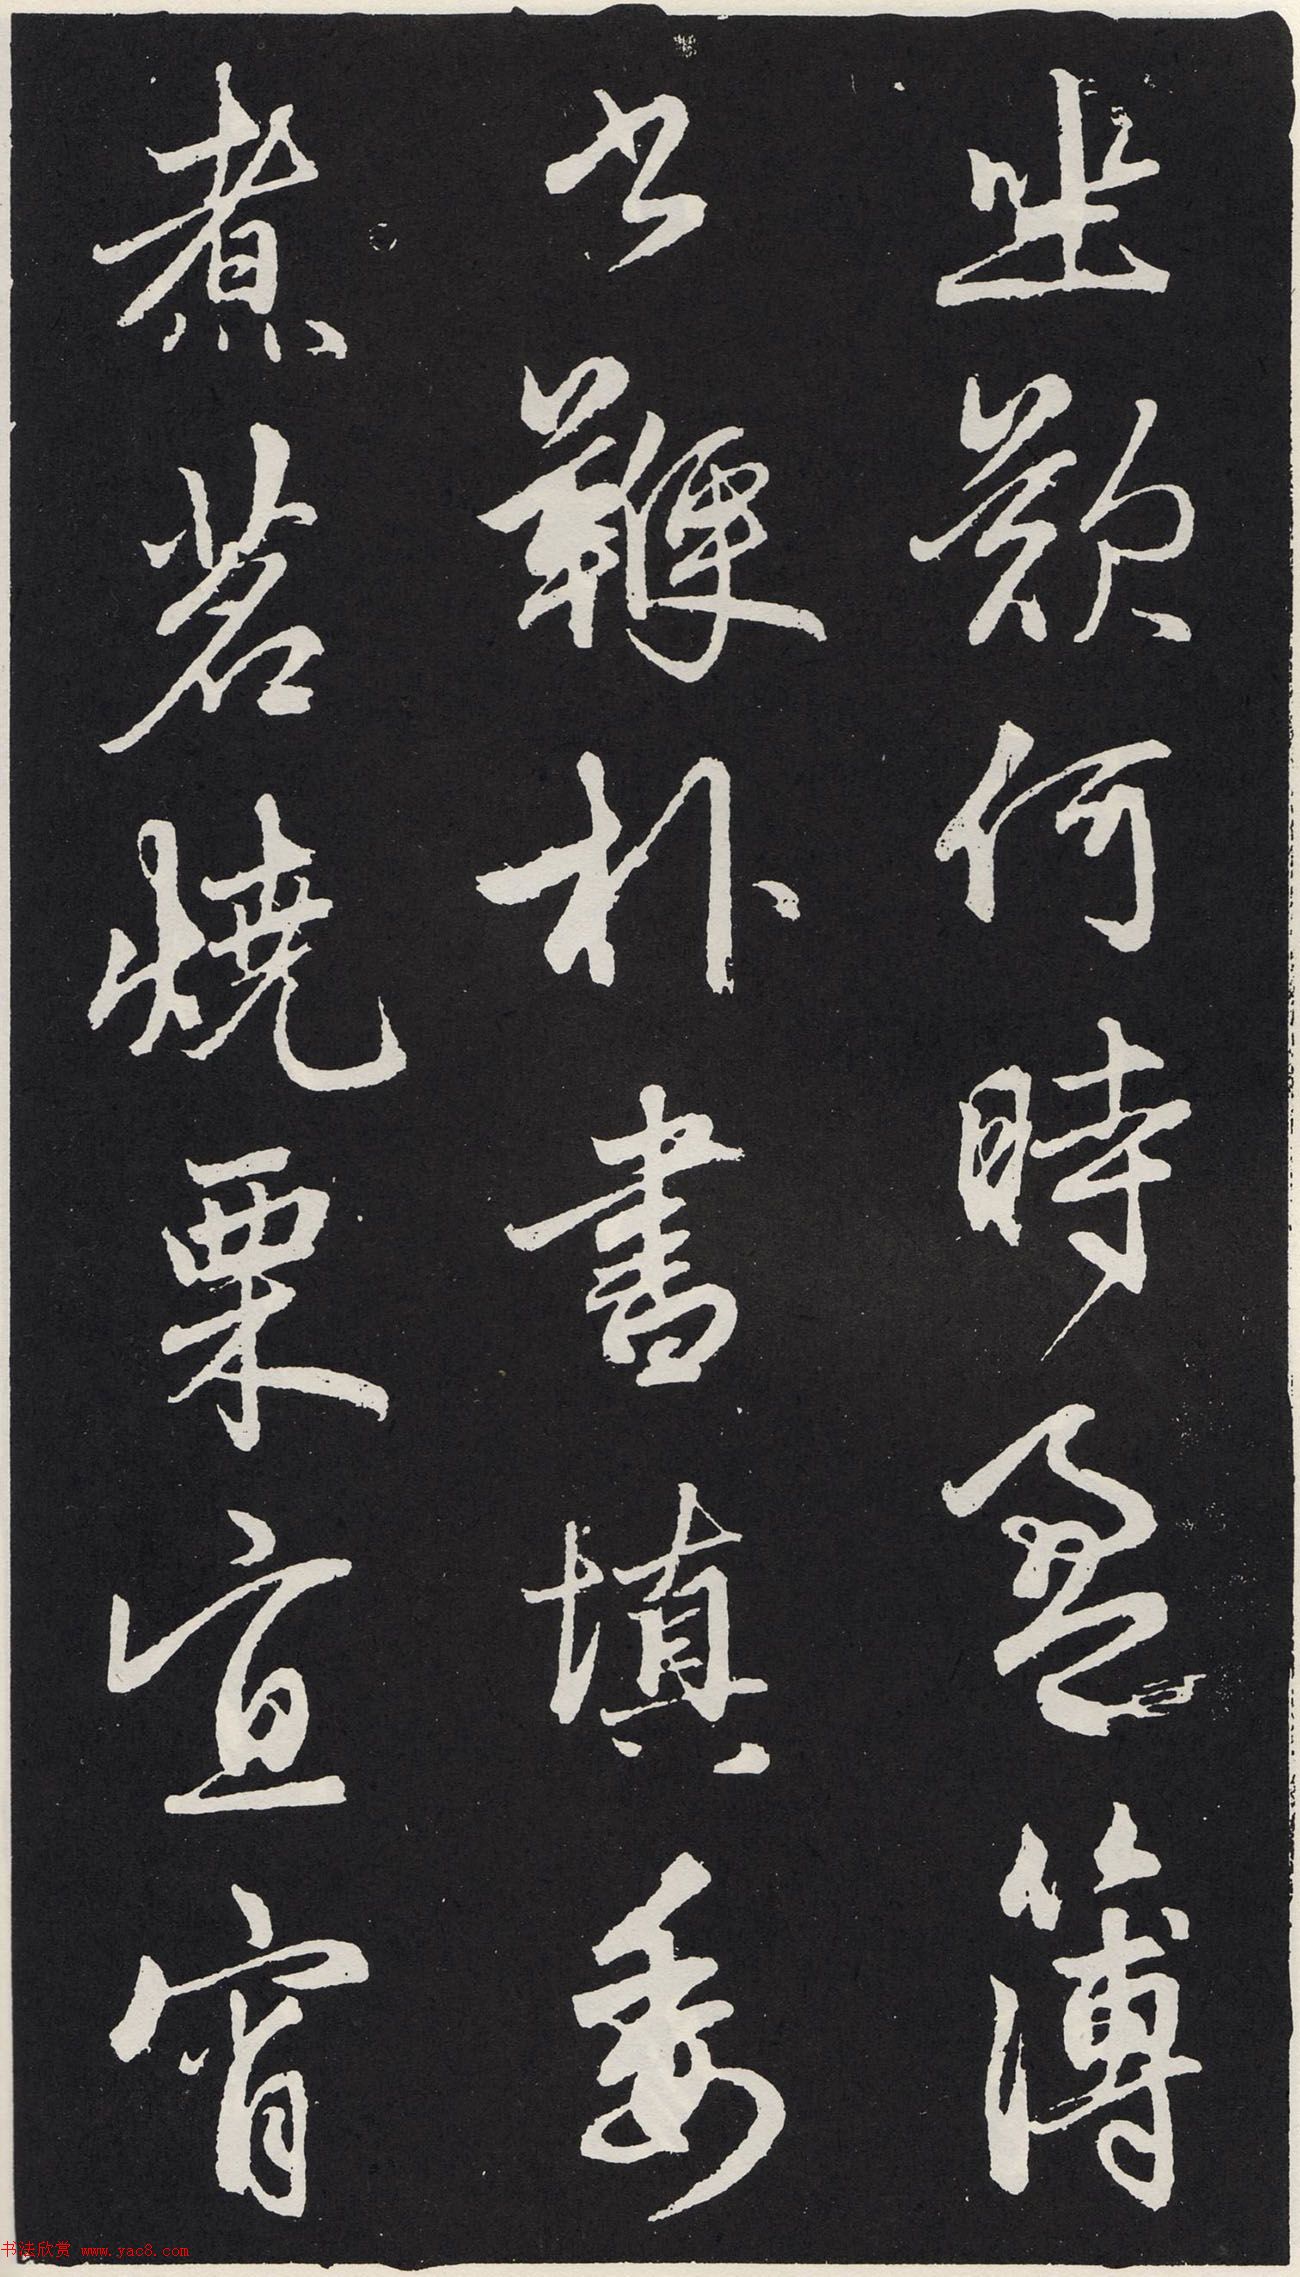 坐歎何時盈簿
書鞭扑晝填委
煮茗燒栗宜宵
书法欣赏 www.yac8.com